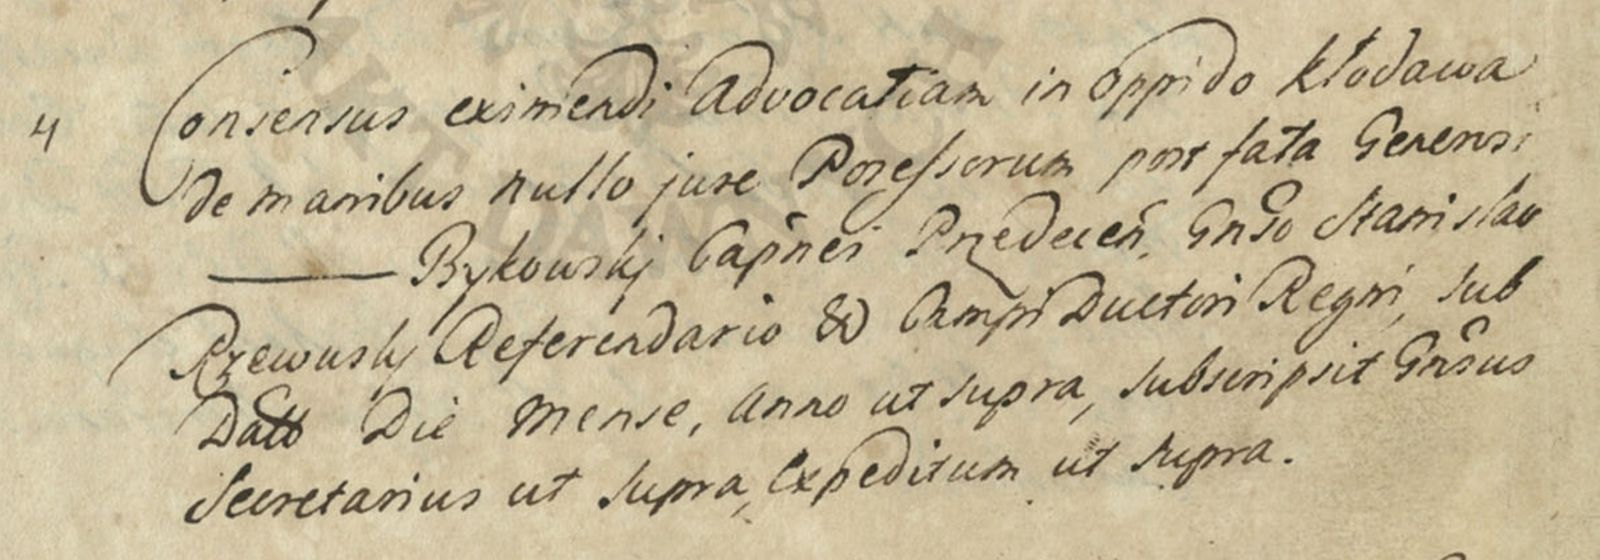 4 Consensus eximendi Advocatiam in oppido Kłodawa
de manibus nullo jure Possessorum post fata Generosi
——— Bykowskj Capnei Przedecen. Gnso Stanislao
Rzewuskj Referendario & Campi Ductori Regni, sub
Datt Die Mense, Anno ut supra, subscripsit Gnsus
Secretarius ut supra, Expeditum ut supra.